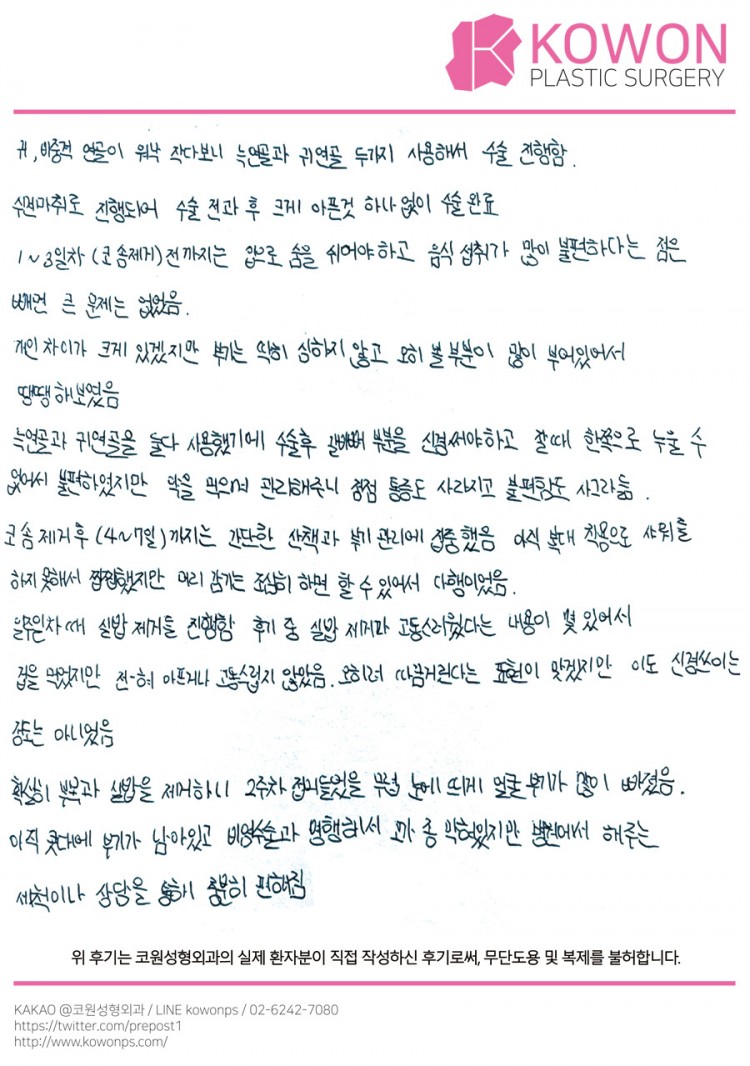 KOWON
PLASTIC SURGERY
귀, 비중격 연골이 워낙 작다보니 늑연골과 귀연골 두가지 사용해서 수술 진행함.
수면마취로 진행되어 수술 전과 후 크게 아픈것 하나 없이 수술 완료
1~3일차 (코 솜제거) 전까지는 입으로 숨을 쉬어야하고 음식 섭취가 많이 불편하다는 점은
빼면 큰 문제는 없었음.
개인 차이가 크게 있겠지만 붓기는 딱히 심하지 않고 오히 볼 부분이 많이 부어있어서
땡땡해보였음
늑연골과 귀연골을 둘다 사용했기에 수술후 갈비뼈 부분을 신경써야하고 잘때 한쪽으로 누울 수
없어서 불편하였지만 약을 먹으며 관리해주니 점점 통증도 사라지고 불편함도 사그라듦.
코 솜 제거 후 (4~7일) 까지는 간단한 산책과 붓기 관리에 집중했음 아직 복대 착용으로 샤워를
하지 못해서 찝찝했지만 머리 감기는 조심히 하면 할 수 있어서 다행이었음.
일주일차 때 실밥 제거를 진행함 후기 중 실밥 제거가 고통스러웠다는 내용이 몇 있어서
겁을 먹었지만 전혀 아프거나 고통스럽지 않았음. 오히려 따끔거린다는 표현이 맞겠지만 이도 신경쓰이는
정도는 아니었음
확실히 부목과 실밥을 제거하니 2주차 접어들었을 무렵 눈에 띄게 얼굴 붓기가 많이 빠졌음.
아직 콧대에 부기가 남아있고 비염수술과 병행해서 코가 좀 막혀있지만 병원에서 해주는
세척이나 상담을 통해 충분히 편해짐
위 후기는 코원성형외과의 실제 환자분이 직접 작성하신 후기로써, 무단도용 및 복제를 불허합니다.
KAKAO @코원성형외과 / LINE kowonps / 02-6242-7080
https://twitter.com/prepost1
http://www.kowonps.com/